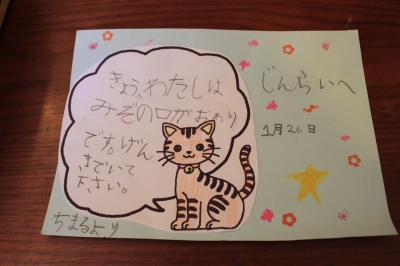 きょう、わたしは
みぞの口がおわり
です。げん
きでいて
下さい。
ちまるより
じんらいへ
1月26日